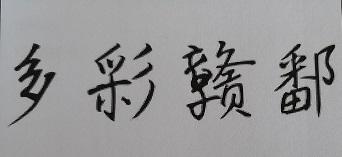 多彩赣鄱